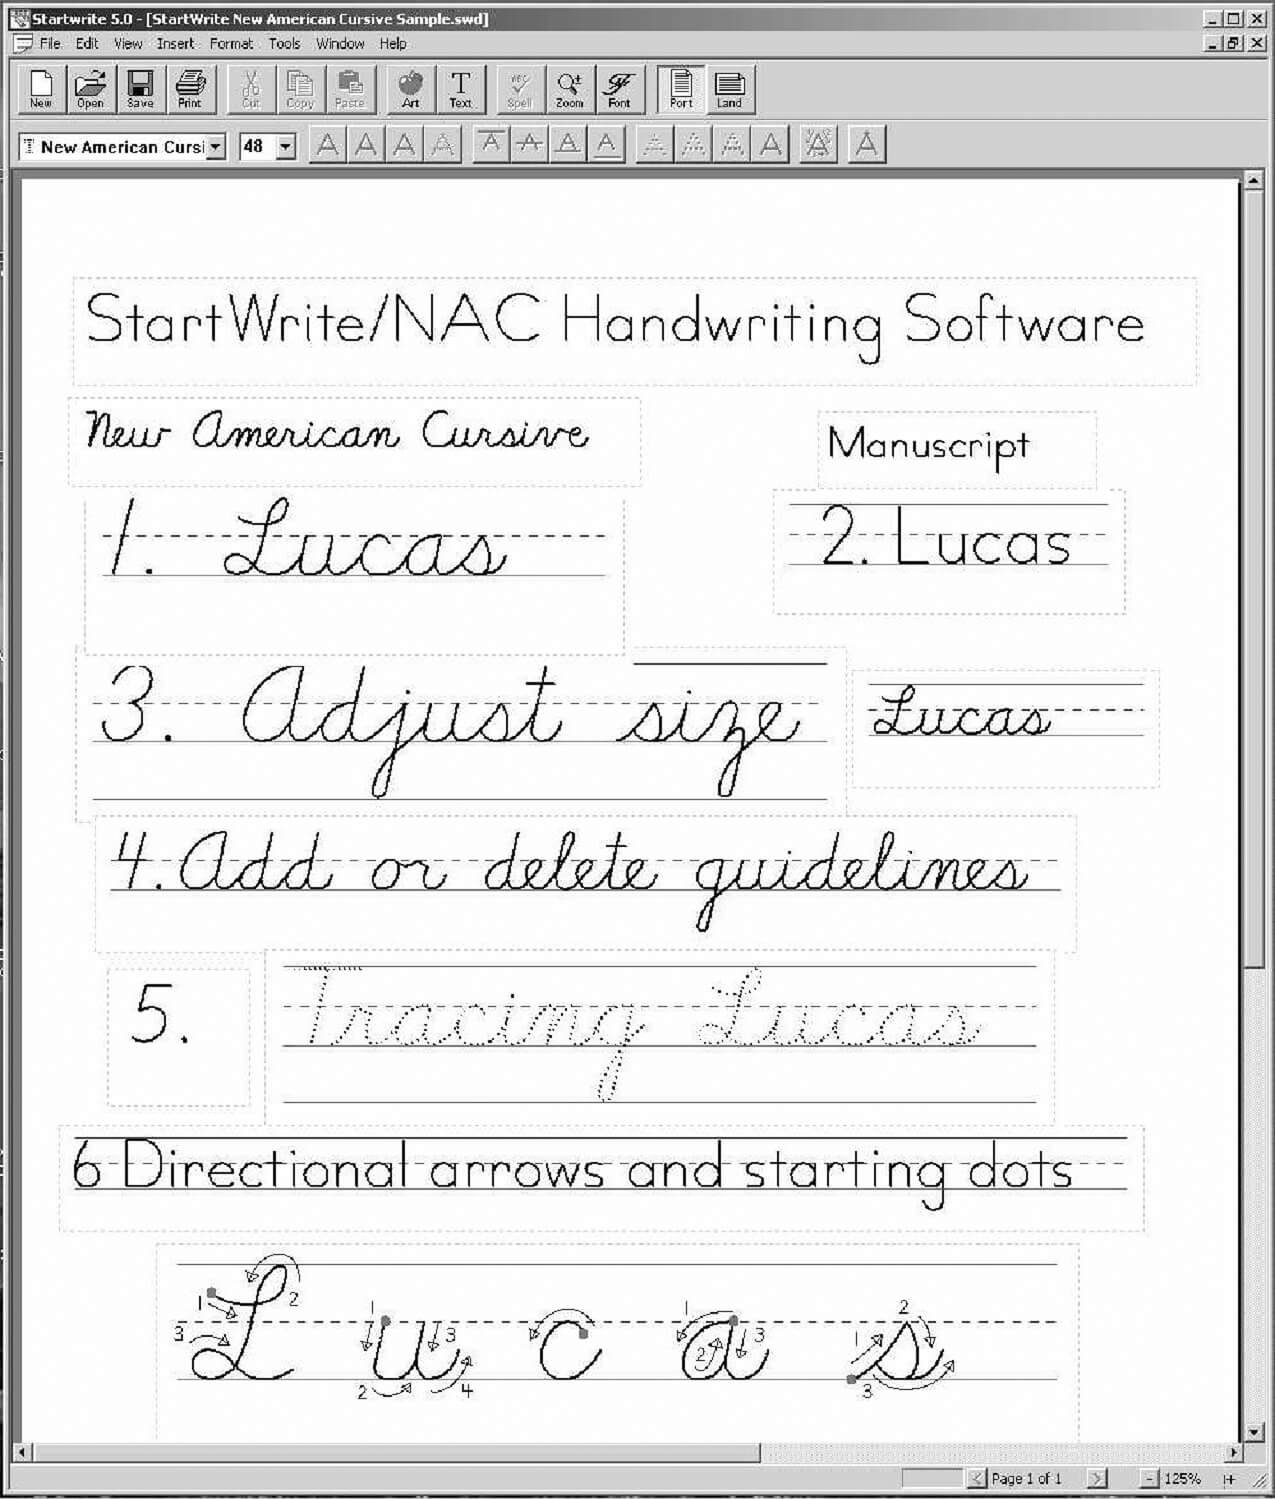 Startwrite 5.0 - [StartWrite New American Cursive Sample.swd]
File Edit View Insert Format Tools Window Help
New Open Save Print Cut Copy Paste Art Text Spell Zoom Font Port Land
New American Cursi 48
StartWrite/NAC Handwriting Software
New American Cursive
Manuscript
1. Lucas
2. Lucas
3. Adjust size
Lucas
4. Add or delete guidelines
5. Tracing Lucas
6 Directional arrows and starting dots
Lucas
Page 1 of 1 125%